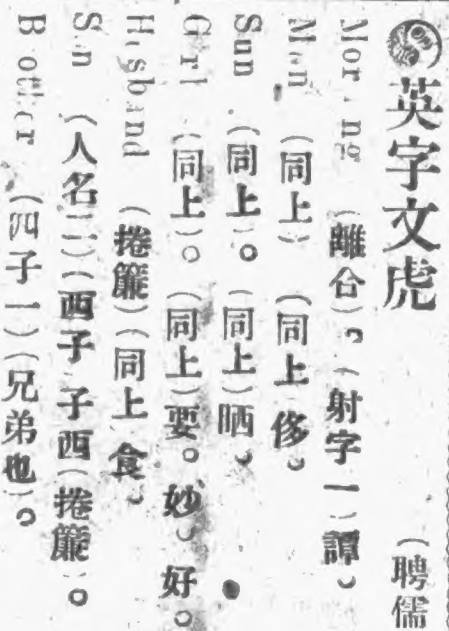 英字文虎 (聘儒
Morning (離合)。(射字一)譚。
Men (同上) (同上)侈。
Sun (同上)。(同上)晒。
Girl (同上)。(同上)要。妙。好。
Husband (捲簾)(同上)食。
(人名二)(西子 子西(捲簾)。
Brother (四子一)(兄弟也)。